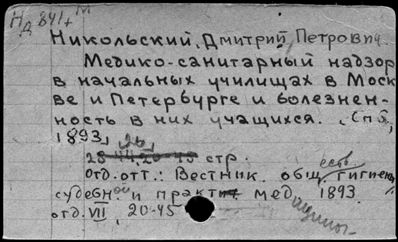 Нд 841+М
Никольский, Дмитрий Петрович.
Медико-санитарный надзор
в начальных училищах в Моск
ве и Петербурге и болезнен-
ность в них учащихся. Спб,
1893, 26,
стр.
Отд. отт.: Вестник общ. гигиены,
судебной и практ. мед 1893.
отд. VII, 20-45